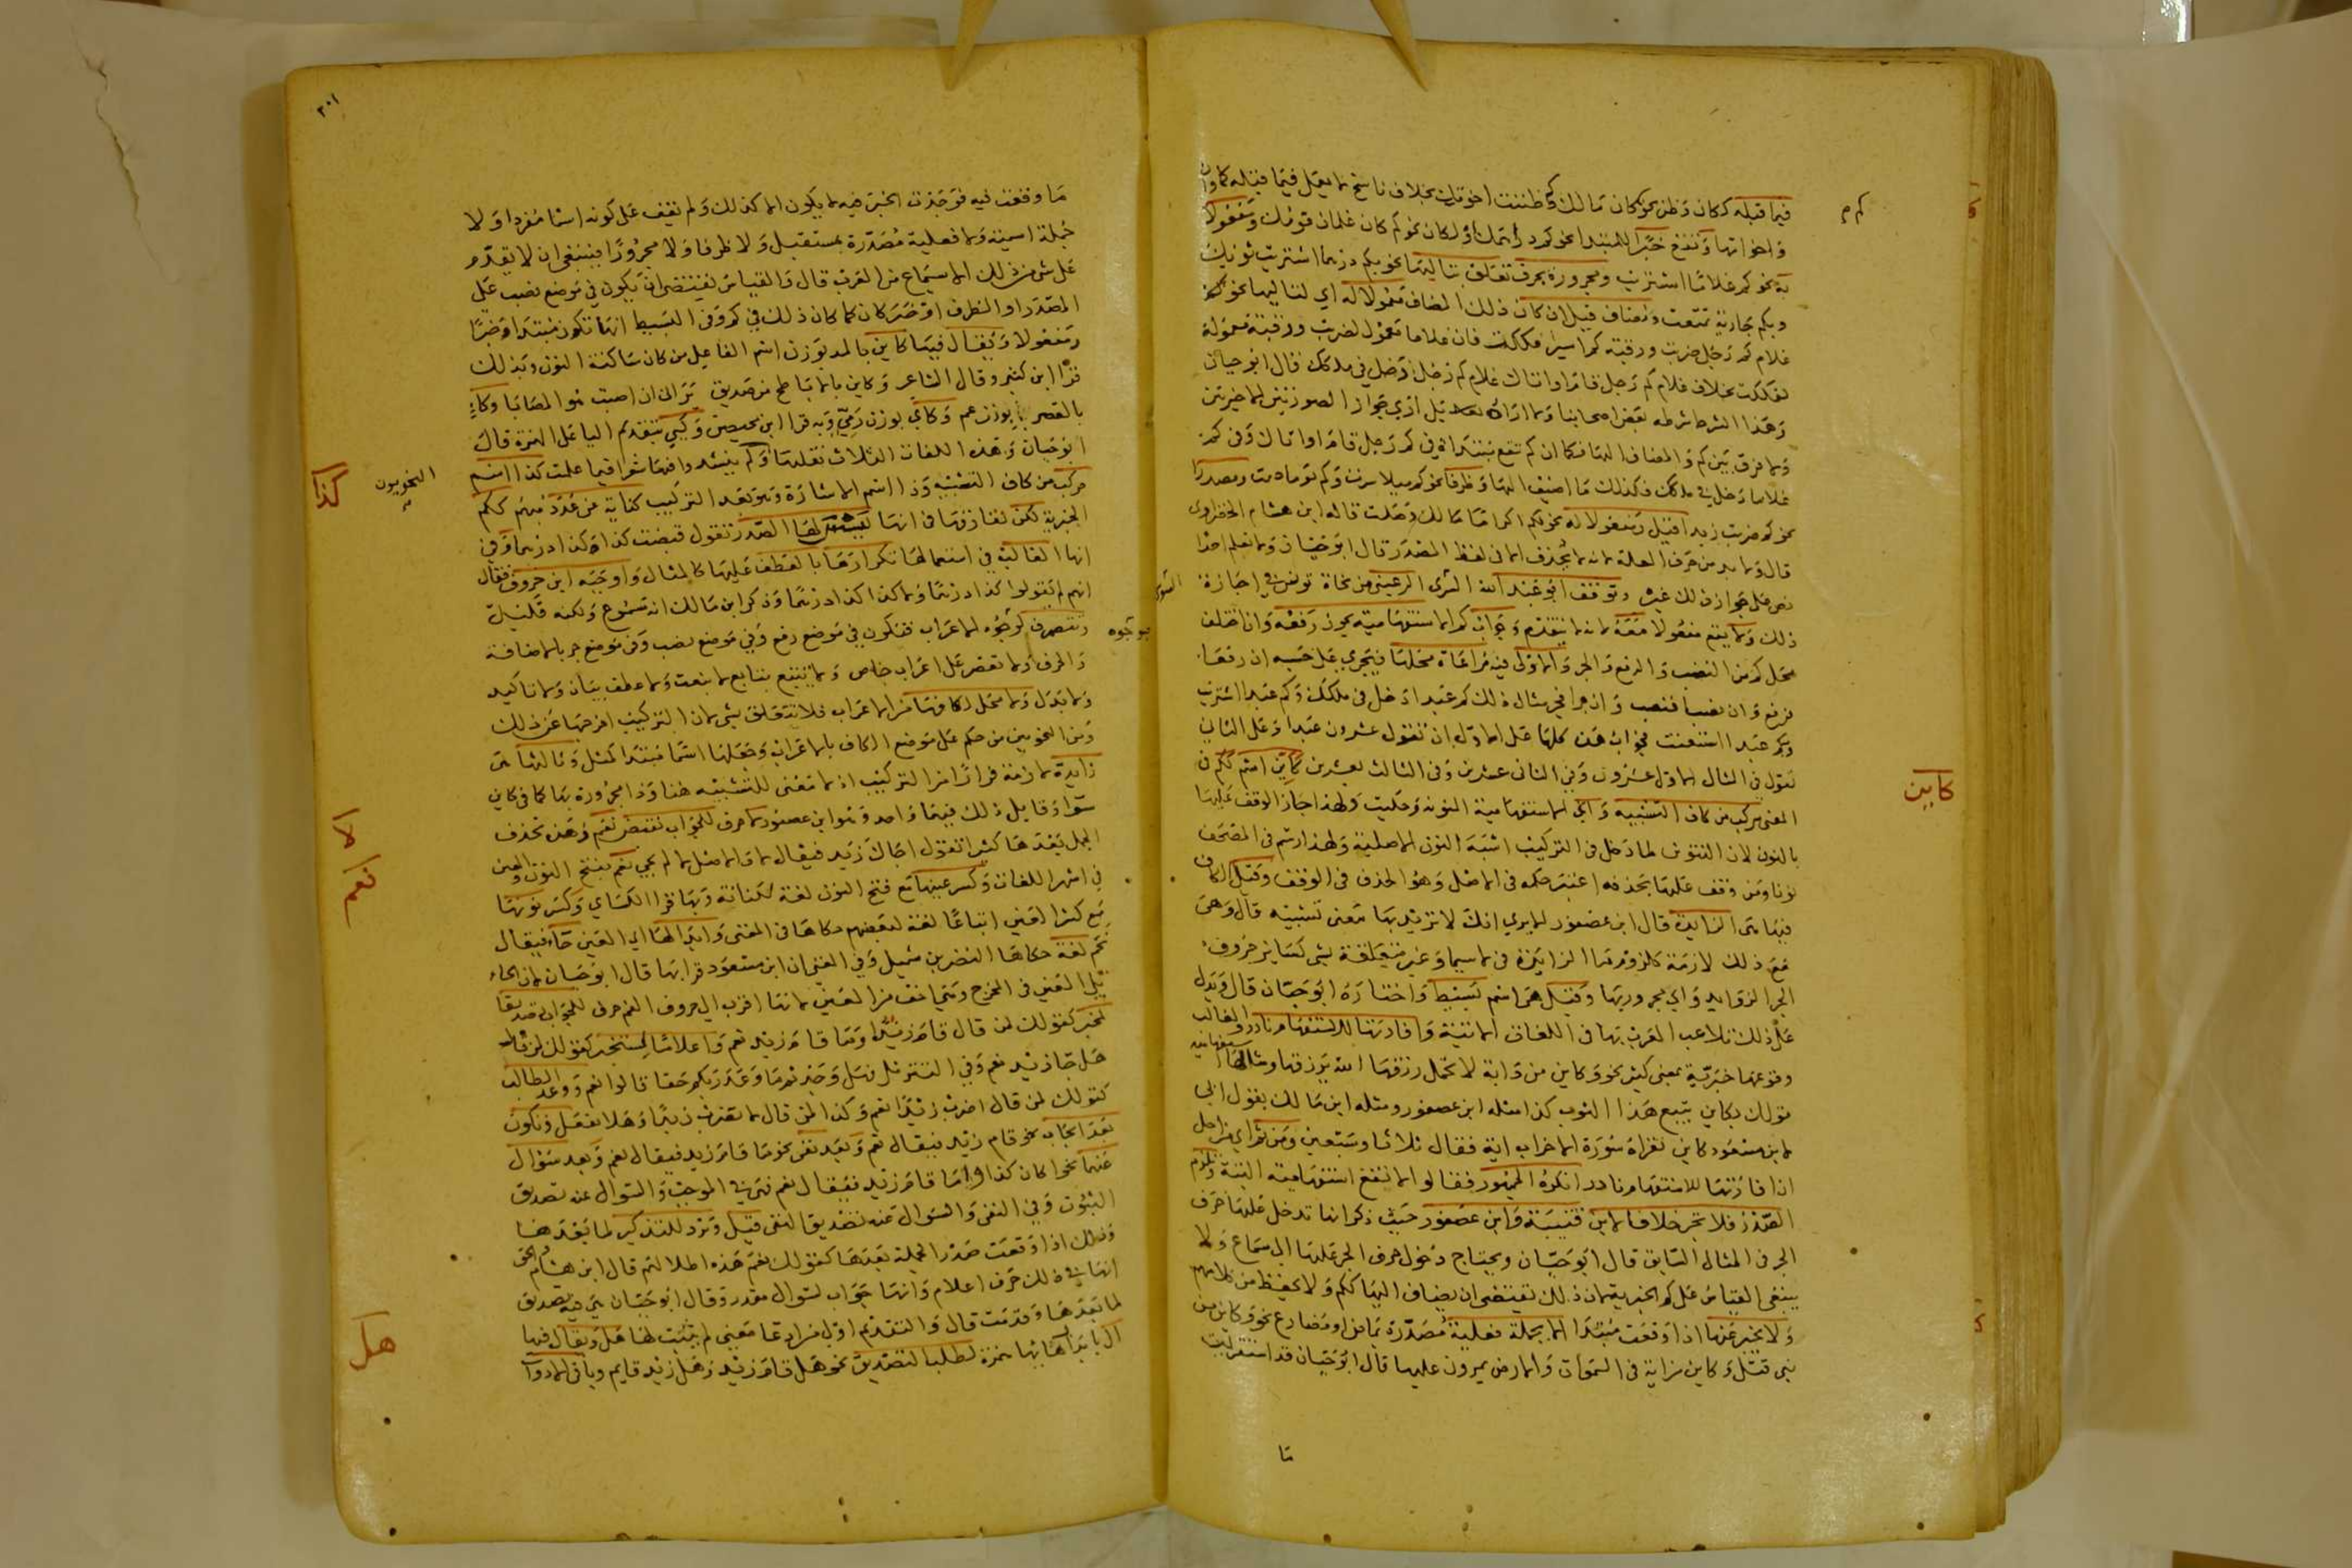 فيما قبله ككان وظن نحو كم كان مالك وكم ظننت اخوتك بخلاف ناسخ لا يعمل فيما قبله كما وان
واخواتها وتقع خبرا للمبتدا نحو كم دراهمك او لكان نحو كم كان غلمان قومك ومفعولا
به نحو كم غلاما اشتريت ومجرورة بحرف تعلق بتاليها نحو بكم درهما اشتريت ثوبك
وبكم جارية تمتعت ومضاف قيل ان كان ذلك المضاف معمولا له اي لتاليها نحو
غلام كم رجل ضربت ورقبة كم اسيرا فككت فان غلاما معمول لضربت ورقبة معمولة
لفككت بخلاف غلام كم رجل قام او اتاك غلام كم رجل دخل في ملكك قال ابو حيان
وهذا الشرط شرطه بعض اصحابنا ولا اراه بل ارى جواز الصورتين الاخيرتين
ولا فرق بين كم والمضاف اليها فكما ان كم تقع مبتداة في كم رجل قام او اتاك وفي كم
غلاما دخل في ملكك فكذلك ما اضيف اليها وظرفا نحو كم ميلا سرت وكم يوما صمت ومصدرا
نحو كم ضربت زيدا قيل ومفعولا له نحو لكم اكراما مالك وصلت قاله ابن هشام الخضراوي
قال ولا بد من حرف العلة لانه لا يحذف الا في لفظ المصدر قال ابو حيان ولا نعلم احدا
نص على جواز ذلك غيره وتوقف ابو عبد الله الرعيني من نحاة تونس في اجازة
ذلك ولا يقع مفعولا معه لانه لا يتقدم وجواب كم الاستفهامية يجوز رفعه وان اختلف
محل كم من النصب والرفع والجر والاولى فيه مراعاة محلها فيجري على حسبه ان رفعا
فرفع وان نصبا فنصب وان جرا فجر مثال ذلك كم عبدا دخل في ملكك وكم عبدا اشتريت
وبكم عبدا استعنت فجواب هذه كلها على الاول ان تقول عشرون عبدا وعلى الثاني
تقول في المثال الاول عشرون وفي الثاني عشرين وفي الثالث بعشرين كاين اسم ككم في
المعنى مركب من كاف التشبيه واي الاستفهامية المنونة وحكيت ولهذا جاز الوقف عليها
بالنون لان التنوين لما دخل في التركيب اشبه النون الاصلية ولهذا رسم في المصحف
نونا ومن وقف عليها بحذفه اعتبر حكمه في الاصل وهو الحذف في الوقف وقيل الكاف
فيها هي الزايدة قال ابن عصفور الا ترى انك لا تريد بها معنى تشبيه قال وهي
مع ذلك لازمة كلزوم ما الزائدة في لا سيما وغير متعلقة بشي كساير حروف
الجر الزوايد واي مجرور بها وقيل هي اسم بسيط واختاره ابو حيان قال ويدل
على ذلك تلاعب العرب بها في اللغات الاتية وافادتها للاستفهام نادر والغالب
وقوعها خبرية بمعنى كثير نحو وكاين من دابة لا تحمل رزقها الله يرزقها ومثالها استفهامية
قولك بكاين تبيع هذا الثوب كذا مثله ابن عصفور ومثله ابن مالك بقول ابي
لابن مسعود كاين تقراء سورة الاحزاب اية فقال ثلاثا وسبعين ومن ثم اي من اجل
ان افادتها للاستفهام نادر انكره الجمهور فقالوا لا تقع استفهامية البتة وتلزم
الصدر فلا تجر خلافا لابن قتيبة وابن عصفور حيث ذكرا انها تدخل عليها حرف
الجر في المثال السابق قال ابو حيان ويحتاج دخول حرف الجر عليها الى سماع ولا
ينبغي القياس على كم الخبرية لان ذلك يقتضي ان يضاف اليها ككم ولا يحفظ من كلامهم
ولا يخبر عنها اذا وقعت مبتدا الا بجملة فعلية مصدرة بماض او مضارع نحو وكاين من
نبي قتل وكاين من اية في السموات والارض يمرون عليها قال ابو حيان قد استقريت
ما
كم م
كاين
٣٠١
ما وقعت فيه فوجدت الخبر فيه لا يكون الا كذلك ولم نقف على كونه اسما مفردا ولا
جملة اسمية ولا فعلية مصدرة بمستقبل ولا ظرفا ولا مجرورا فينبغي ان لا يقدم
على شي من ذلك الا بسماع من العرب قال والقياس يقتضي ان يكون في موضع نصب على
المصدر او الظرف او خبر كان كما كان ذلك في كم وفي البسيط انها تكون مبتدا وخبرا
ومفعولا ويقال فيها كاين بالمد بوزن اسم الفاعل من كان ساكنة النون وبذلك
قرا ابن كثير وقال الشاعر وكاين بالاباطح من صديق يراني ان اصبت هو المصابا وكاء
بالقصر بوزن عم وكأي بوزن رمي وبه قرا ابن محيصن وكيئ بتقديم اليا على الهمزة قال
ابو حيان وهذه اللغات الثلاث نقلها النحويون ولم ينشدوا فيها شعرا فيما علمت كذا اسم
مركب من كاف التشبيه وذا اسم الاشارة وهو بعد التركيب كناية عن عدد مبهم ككم
الخبرية لكن تفارقها في انها ليس لها الصدر تقول قبضت كذا وكذا درهما وفي
انها الغالب في استعمالها تكرارها بالعطف عليها كالمثال واوجبه ابن خروف فقال
انهم لم يقولوا كذا درهما ولا كذا كذا درهما وذكر ابن مالك انه مسموع ولكنه قليل
وتتصرف بوجوه الاعراب فتكون في موضع رفع وفي موضع نصب وفي موضع جر بالاضافة
والحرف ولا تقتصر على اعراب خاص ولا يتبع بتابع لا بنعت ولا عطف بيان ولا تاكيد
ولا بدل ولا محل لكافها من الاعراب فلا تتعلق بشي لان التركيب اخرجها عن ذلك
ومن النحويين من حكم على موضع الكاف بالاعراب وجعلها اسما مبتدا كمثل وثالثها هي
زايدة لازمة فرارا من التركيب اذ لا معنى للتشبيه هنا وذا مجرورة بها كما في كاين
سواء وقايل ذلك فيهما واحد وهو ابن عصفور لا حرف للجواب نقيض نعم وهذه تحذف
الجمل بعدها كثيرا تقول اجاك زيد فيقال لا والاصل لا لم يجي نعم بفتح النون والعين
في اشهر اللغات وكسر عينها مع فتح النون لغة لكنانة وبها قرا الكسائي وكسر نونها
مع كسر العين اتباعا لغة لبعضهم حكاها في المغنى وابدالها اي العين حاء فيقال
نحم لغة حكاها النضر بن شميل وفي المغني ان ابن مسعود قرا بها قال ابو حيان لان الحاء
تلي العين في المخرج وهي اخف من العين لانها اقرب الى حروف الفم حرف للجواب تصديقا
لمخبر كقولك لمن قال قام زيد او ما قام زيد نعم واعلاما لمستخبر كقولك لمن قال
هل جاء زيد نعم وفي التنزيل فهل وجدتم ما وعد ربكم حقا قالوا نعم ووعدا لطالب
كقولك لمن قال اضرب زيدا نعم وكذا لمن قال لا تضرب زيدا وهلا تفعل وتكون
بعد ايجاب نحو قام زيد فيقال نعم وبعد نفي نحو ما قام زيد فيقال نعم وبعد سؤال
عنهما نحو اكان كذا واما قام زيد فيقال نعم فهي في الموجب والسوال عنه تصديق
الثبوت وفي النفي والسوال عنه تصديق النفي قيل وترد للتذكير لما بعدها
وذلك اذا وقعت صدر الجملة بعدها كقولك نعم هذه اطلالهم قال ابن هشام والحق
انها في ذلك حرف اعلام وانها جواب لسوال مقدر وقال ابو حيان هي فيه تصديق
لما بعدها وقدمت قال والتقديم اولى من ادعا معنى لم يثبت لها هل ويقال فيها
ال بابدال هائها همزة لطلب التصديق نحو هل قام زيد وهل زيد قايم وباقي الادوات
النحويون
كذا
بوجوه
لا
نعم
هل